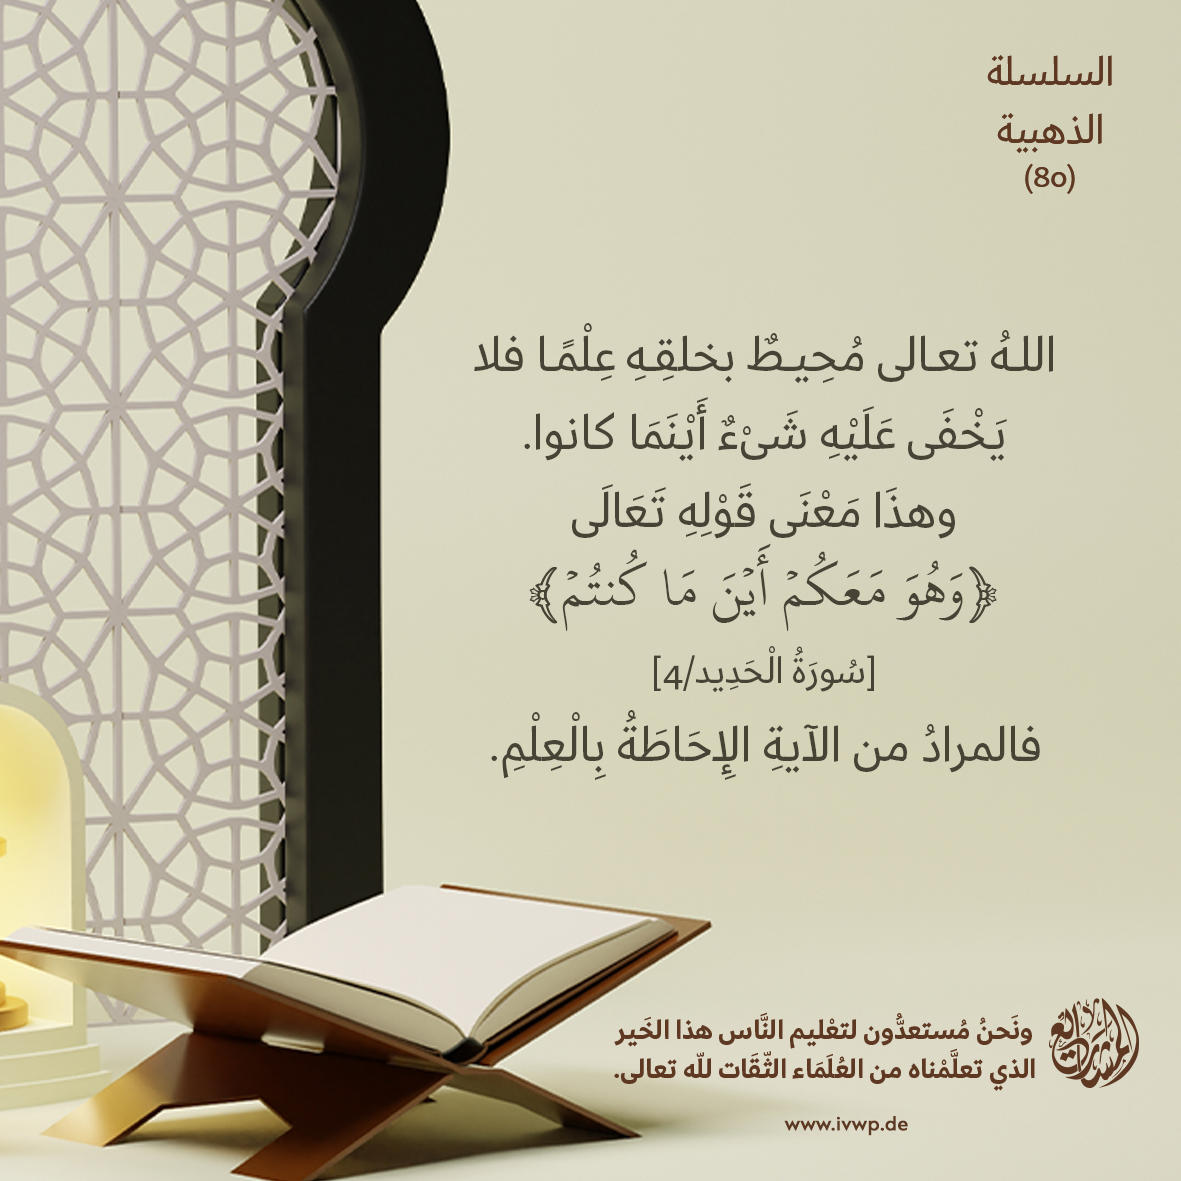 السلسلة
الذهبية
(80)
اللهُ تعالى مُحِيطٌ بخلقِهِ عِلْمًا فلا
يَخْفَى عَلَيْهِ شَىْءٌ أَيْنَمَا كانوا.
وهذَا مَعْنَى قَوْلِهِ تَعَالَى
﴿وَهُوَ مَعَكُمْ أَيْنَ مَا كُنتُمْ﴾
[سُورَةُ الْحَدِيد/4]
فالمرادُ من الآيةِ الإِحَاطَةُ بِالْعِلْمِ.
ونَحنُ مُستعدُّون لتعْليم النَّاس هذا الخَير
الذي تعلَّمْناه من العُلَمَاء الثّقَات للّه تعالى.
www.ivwp.de